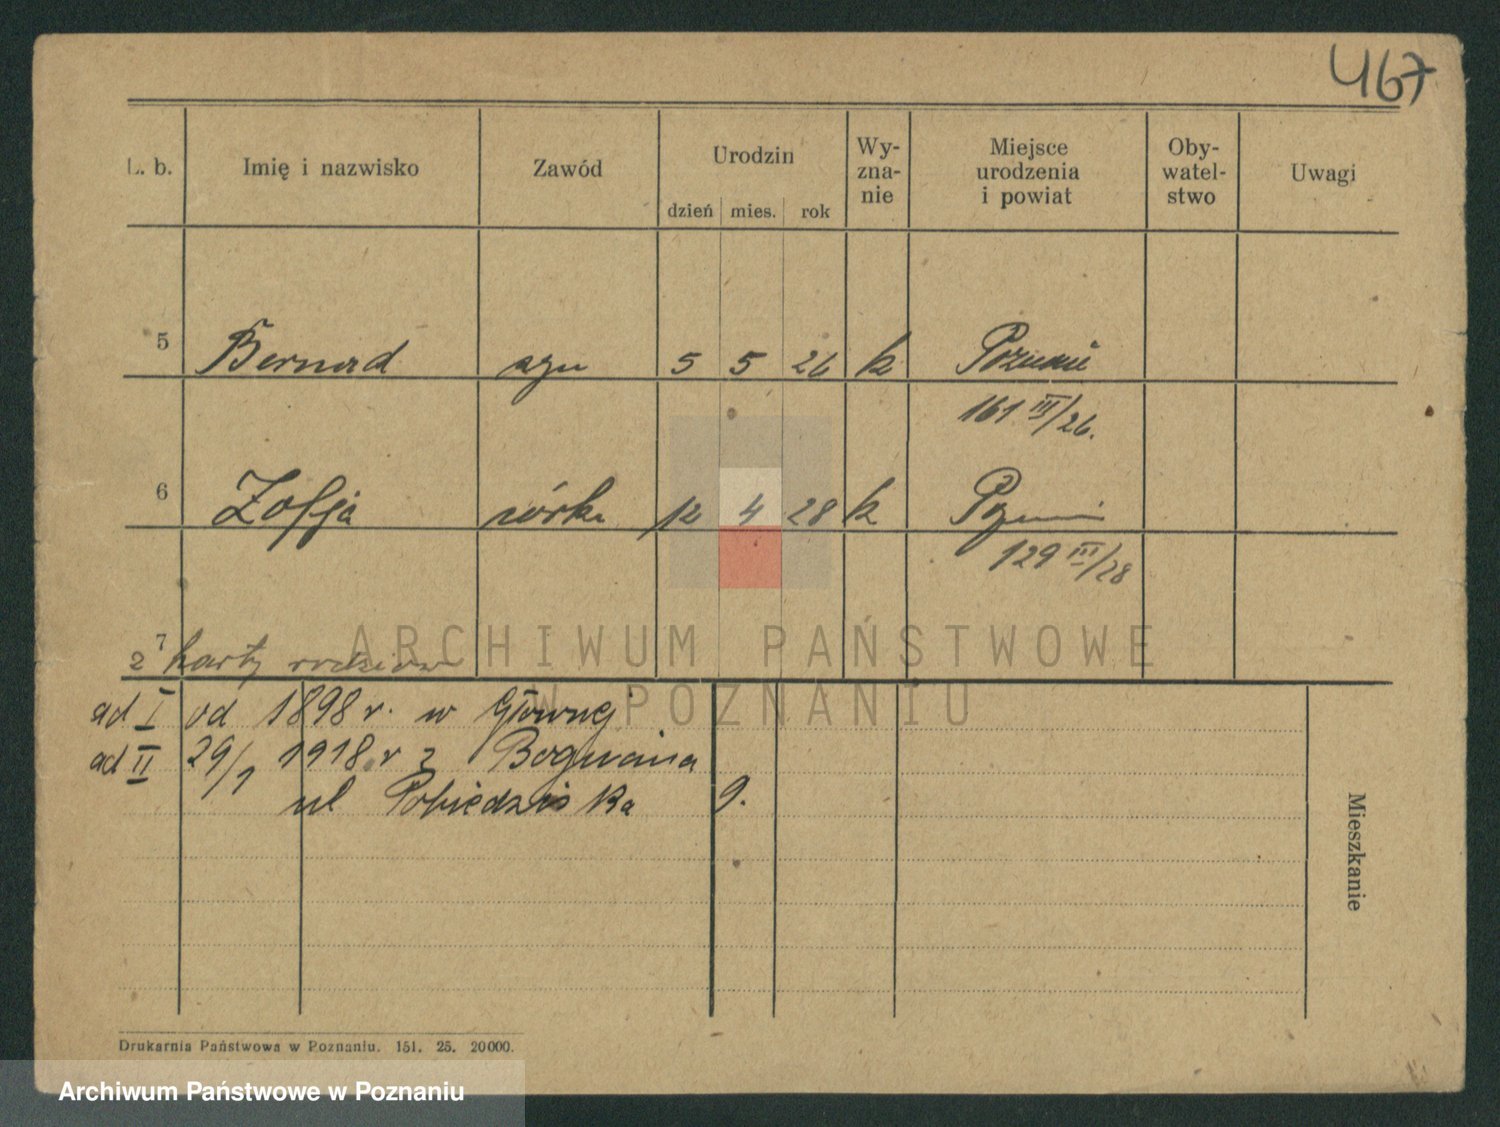 467
L. b. Imię i nazwisko Zawód Urodzin Wy-zna-nie Miejsce urodzenia i powiat Oby-watel-stwo Uwagi
dzień mies. rok
5 Bernard syn 5 5 26 k Poznań
161 III/26.
6 Zofja córka 12 4 28 k Poznań
129 III/28
7
2 karty rodziców
ad I od 1898 r. w Głównej
ad II 29/1 1918 r z
ul Pobiedziska 9.
Mieszkanie
Drukarnia Państwowa w Poznaniu. 151. 25. 20000.
ARCHIWUM PAŃSTWOWE
W POZNANIU
Archiwum Państwowe w Poznaniu